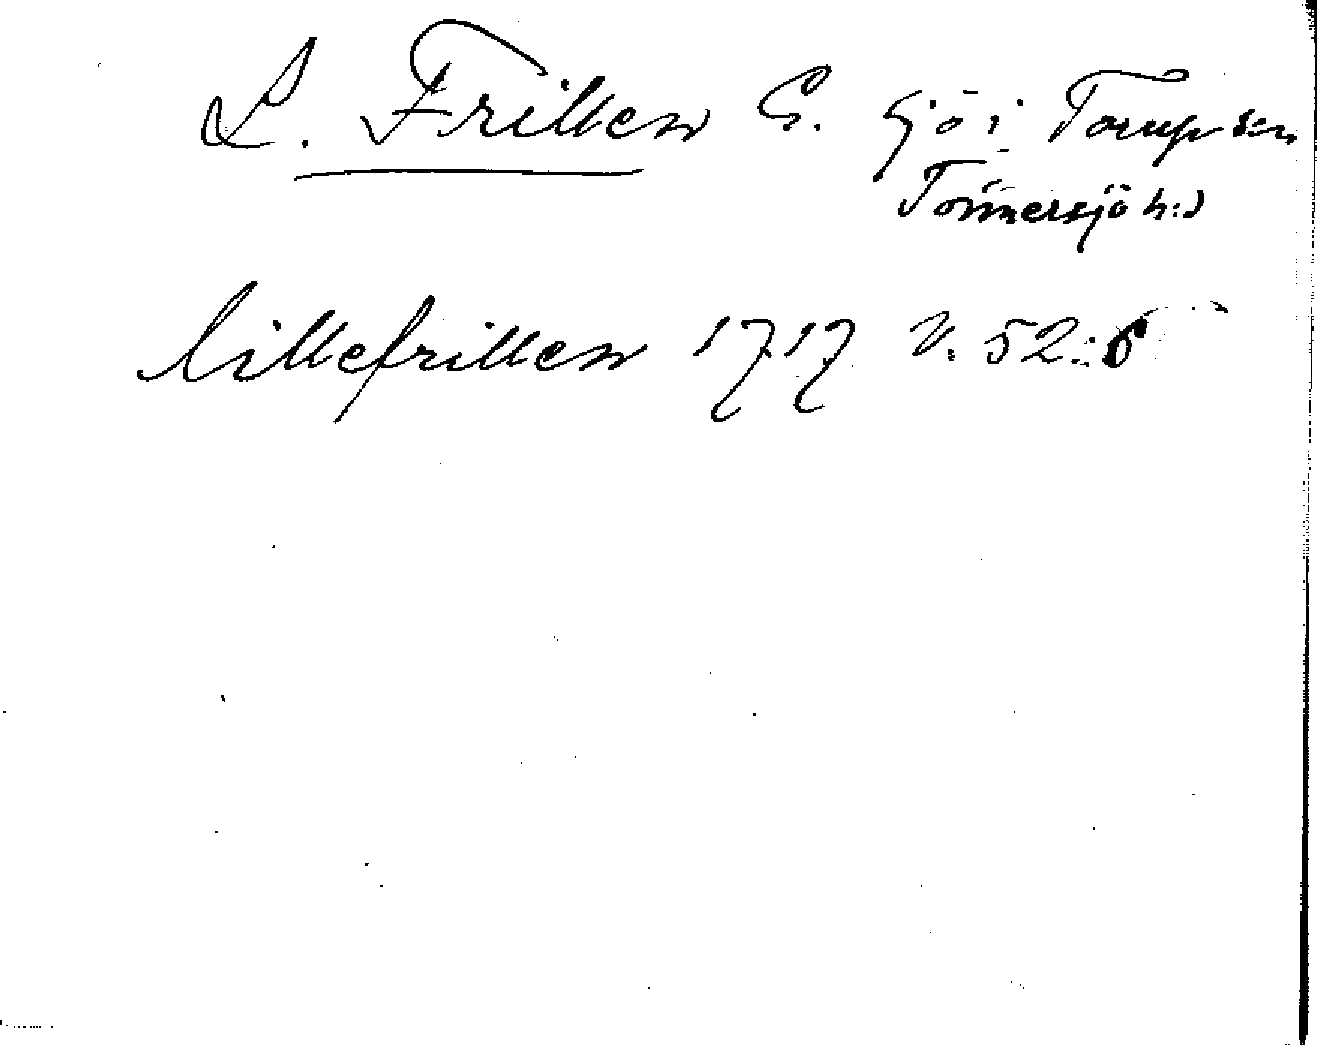 L. Frillen G. sjö i Torup sn
Tönnersjö h:d
lillefrillen 1717 V. 52:6